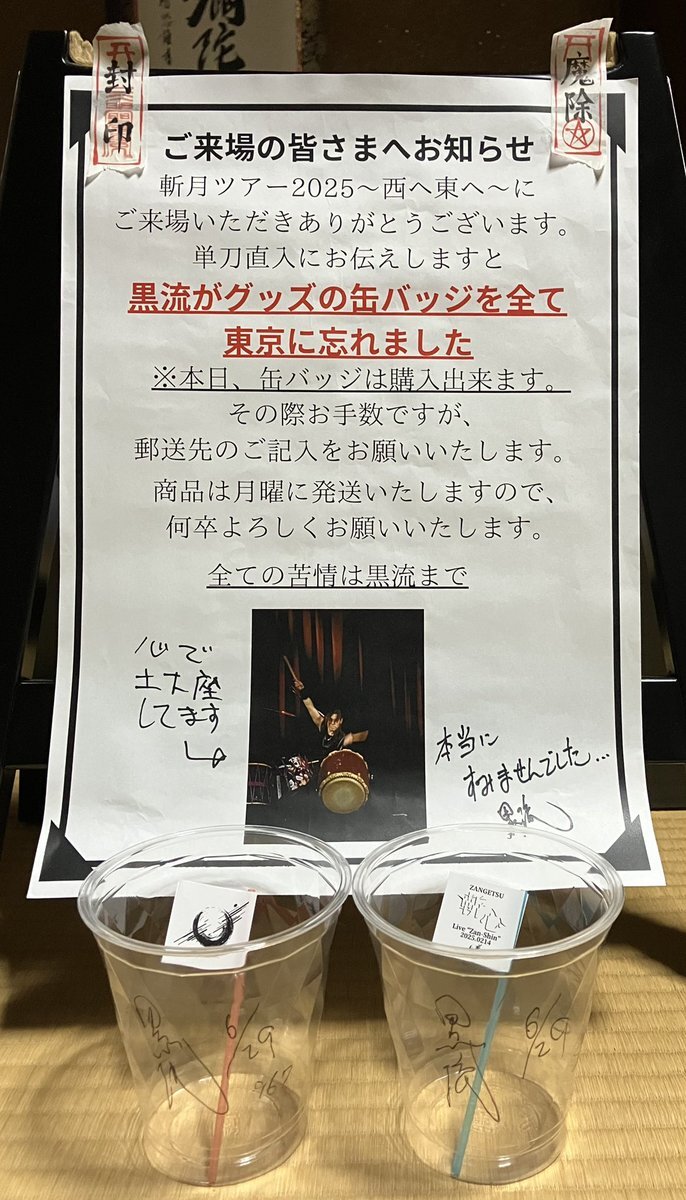 弥陀
封印
魔除
ご来場の皆さまへお知らせ
斬月ツアー2025〜西へ東へ〜に
ご来場いただきありがとうございます。
単刀直入にお伝えしますと
黒流がグッズの缶バッジを全て
東京に忘れました
※本日、缶バッジは購入出来ます。
その際お手数ですが、
郵送先のご記入をお願いいたします。
商品は月曜に発送いたしますので、
何卒よろしくお願いいたします。
全ての苦情は黒流まで
心で
土下座
してます
本当に
すみませんでした...
黒流
ZANGETSU
Live "Zan-Shin"
2025.0214
黒流
6/29
黒流
6/29